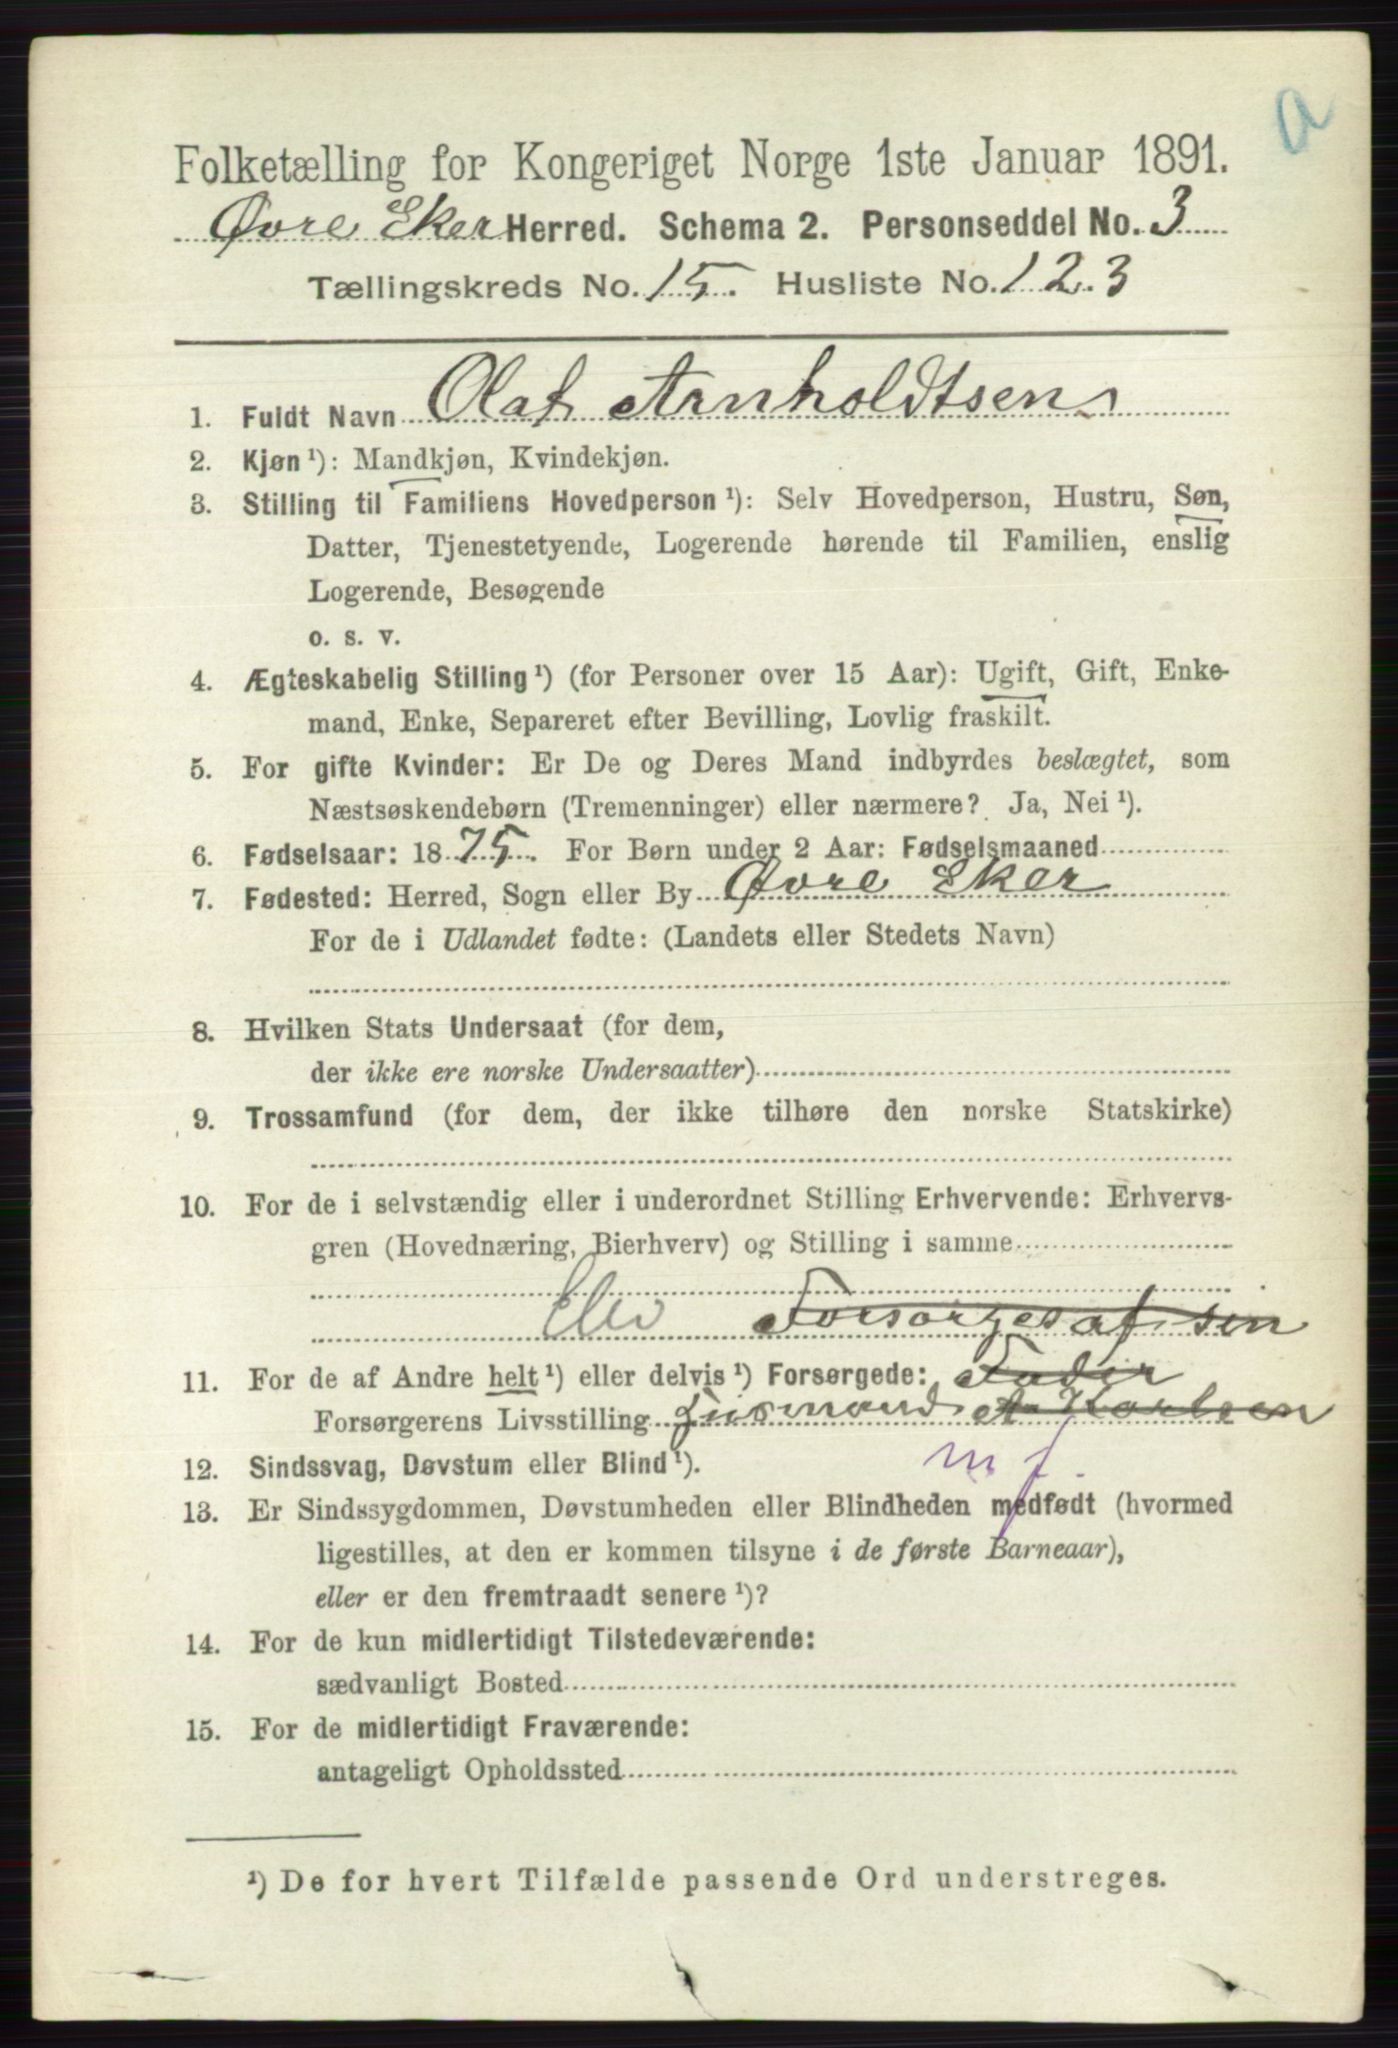 a
Folketælling for Kongeriget Norge 1ste Januar 1891.
Øvre Eker Herred. Schema 2. Personseddel No. 3
Tællingskreds No. 15. Husliste No. 123
1. Fuldt Navn Olaf Arnholdtsen
2. Kjøn ¹): Mandkjøn, Kvindekjøn.
3. Stilling til Familiens Hovedperson ¹): Selv Hovedperson, Hustru, Søn,
Datter, Tjenestetyende, Logerende hørende til Familien, enslig
Logerende, Besøgende
o. s. v.
4. Ægteskabelig Stilling ¹) (for Personer over 15 Aar): Ugift, Gift, Enke-
mand, Enke, Separeret efter Bevilling, Lovlig fraskilt.
5. For gifte Kvinder: Er De og Deres Mand indbyrdes beslægtet, som
Næstsøskendebørn (Tremenninger) eller nærmere? Ja, Nei ¹).
6. Fødselsaar: 1875. For Børn under 2 Aar: Fødselsmaaned
7. Fødested: Herred, Sogn eller By Øvre Eker
For de i Udlandet fødte: (Landets eller Stedets Navn)
8. Hvilken Stats Undersaat (for dem,
der ikke ere norske Undersaatter)
9. Trossamfund (for dem, der ikke tilhøre den norske Statskirke)
10. For de i selvstændig eller i underordnet Stilling Erhvervende: Erhvervs-
gren (Hovednæring, Bierhverv) og Stilling i samme
Elev Forsørges af sin
11. For de af Andre helt ¹) eller delvis ¹) Forsørgede: Fader
Forsørgerens Livsstilling A Karlsen
12. Sindssvag, Døvstum eller Blind ¹). m f
13. Er Sindssygdommen, Døvstumheden eller Blindheden medfødt (hvormed
ligestilles, at den er kommen tilsyne i de første Barneaar),
eller er den fremtraadt senere ¹)?
14. For de kun midlertidigt Tilstedeværende:
sædvanligt Bosted
15. For de midlertidigt Fraværende:
antageligt Opholdssted
¹) De for hvert Tilfælde passende Ord understreges.